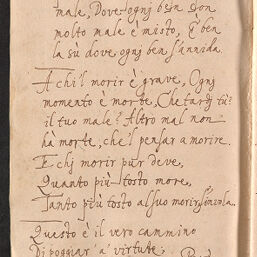 male, Dove ogni ben con
molto male è misto, E ben
la sù dove, ogni ben s'annida.
A chi'l morir è grave, Ogni
momento è morte, Che tardi tù?
il tuo male? Altro mal non
hà morte, che'l pensar a morire.
E chj morir pur deve,
Quanto più tosto more,
Tanto più tosto al suo morir s'invola.
Questo è il vero cammino
Di poggiar' a' virtute;